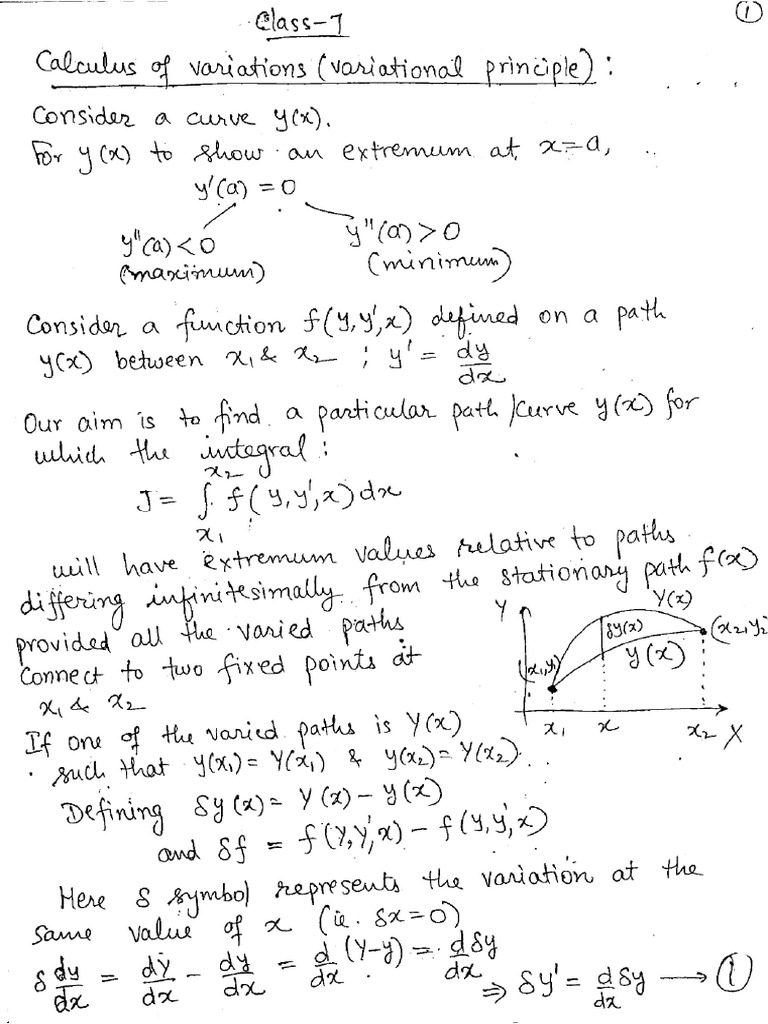 Class-7
①
Calculus of variations (variational principle) :
Consider a curve y(x).
For y(x) to show an extremum at x=a,
y'(a) = 0
y''(a) < 0
y''(a) > 0
(maximum)
(minimum)
Consider a function f(y,y',x) defined on a path
y(x) between x₁ & x₂ ; y' = dy/dx
Our aim is to find a particular path/curve y(x) for
which the integral :
J = ∫_{x₁}^{x₂} f(y,y',x) dx
will have extremum values relative to paths
differing infinitesimally from the stationary path f(x)
provided all the varied paths
connect to two fixed points at
x₁ & x₂
Y
Y(x)
δy(x)
y(x)
(x₁,y₁)
(x₂,y₂
x₁
x
x₂
X
If one of the varied paths is Y(x)
such that y(x₁) = Y(x₁) & y(x₂) = Y(x₂).
Defining δy(x) = Y(x) - y(x)
and δf = f(Y,Y',x) - f(y,y',x)
Here δ symbol represents the variation at the
same value of x (ie. δx=0)
δ dy/dx = dY/dx - dy/dx = d/dx (Y-y) = d/dx δy
⇒ δy' = d/dx δy ⟶ ①